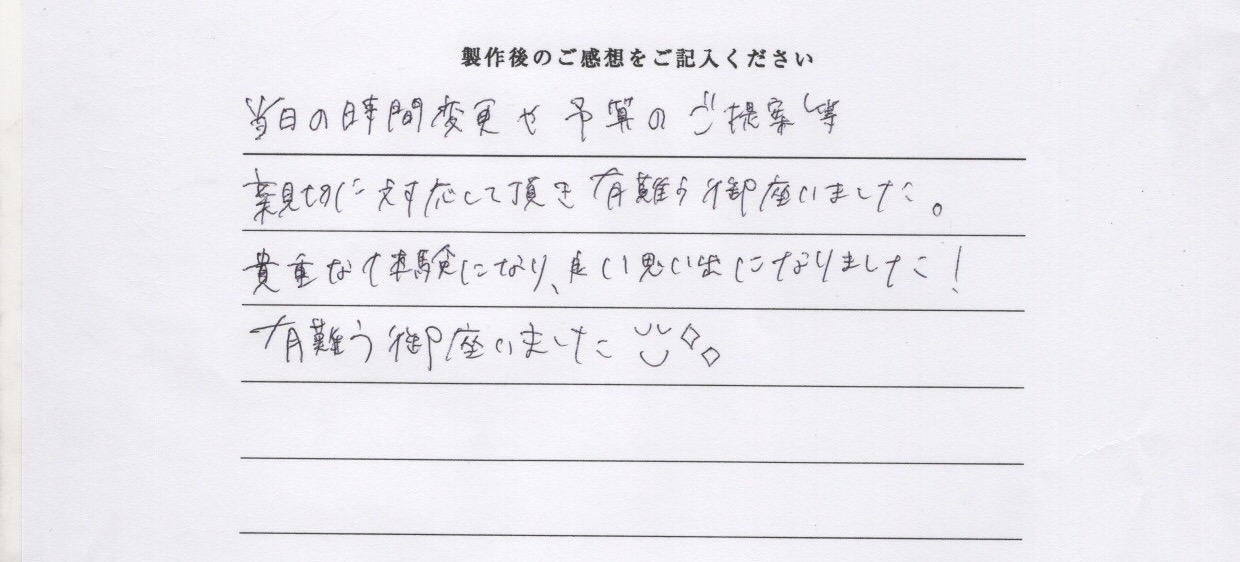 製作後のご感想をご記入ください
当日の時間変更や予算のご提案等
親切に対応して頂き有難う御座いました。
貴重な体験になり、良い思い出になりました!
有難う御座いました